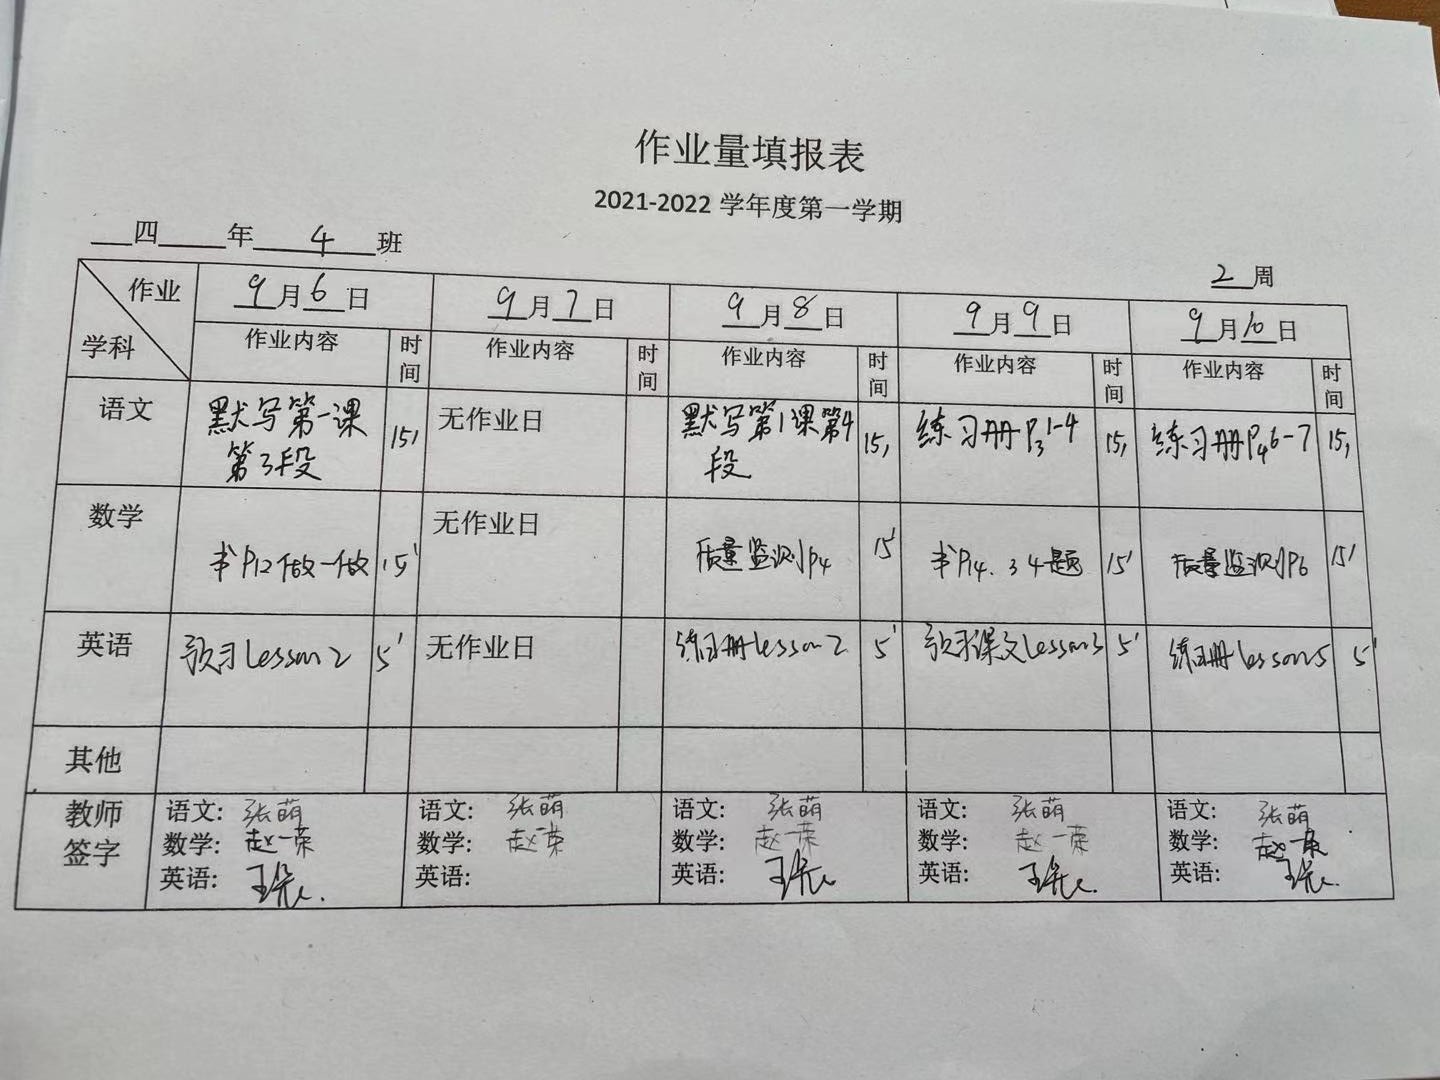 作业量填报表
2021-2022 学年度第一学期
四 年 4 班
2 周
作业
学科
9 月 6 日
9 月 7 日
9 月 8 日
9 月 9 日
9 月 10 日
作业内容 时间
作业内容 时间
作业内容 时间
作业内容 时间
作业内容 时间
语文
默写第一课
第3段
15'
无作业日
默写第1课第4
段
15'
练习册P3 1-4
15'
练习册P4 6-7
15'
数学
书P12做一做
15'
无作业日
质量监测P4
15'
书P14. 3 4题
15'
质量监测P6
15'
英语
预习Lesson2
5'
无作业日
练习册lesson 2
5'
预习课文Lesson3
5'
练习册lesson5
5'
其他
教师
签字
语文: 张萌
数学: 赵一荣
英语:
语文: 张萌
数学: 赵一荣
英语:
语文: 张萌
数学: 赵一荣
英语:
语文: 张萌
数学: 赵一荣
英语:
语文: 张萌
数学: 赵一荣
英语: